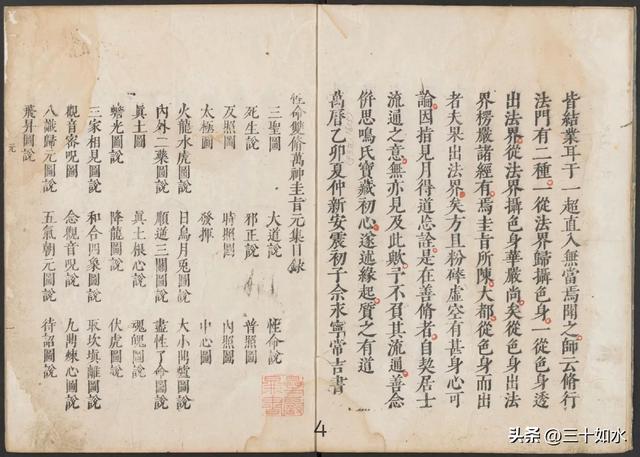 皆結業耳于一超直入無當焉聞之師云脩行
法門有二種一從法界歸攝色身一從色身透
出法界從法界攝色身華嚴尚矣從色身出法
界楞嚴諸經有焉圭旨所陳大都從色身而出
者夫果出法界矣方且粉碎虛空有甚身心可
論因指見月得道忘詮是在善脩者自契居士
流通之意無亦見及此歟予不負其流通善念
併思鳴氏寶藏初心遂述緣起質之有道
萬曆乙卯夏仲新安震初子余永寧常吉書
性命雙脩萬神圭旨元集目錄
三聖圖 大道說 性命說
死生說 邪正說 普照圖
反照圖 時照圖 內照圖
太極圖 發揮 中心圖
火龍水虎圖說 日烏月兔圖說 大小鼎爐圖說
內外二藥圖說 順逆三關圖說 盡性了命圖說
真土圖 真土根心說 魂魄圖說
蟾光圖說 降龍圖說 伏虎圖說
三家相見圖說 和合四象圖說 取坎填離圖說
觀音密呪圖 念觀音呪說 九鼎煉心圖說
八識歸元圖說 五氣朝元圖說 待詔圖說
飛昇圖說
元
4
头条 @三十如水